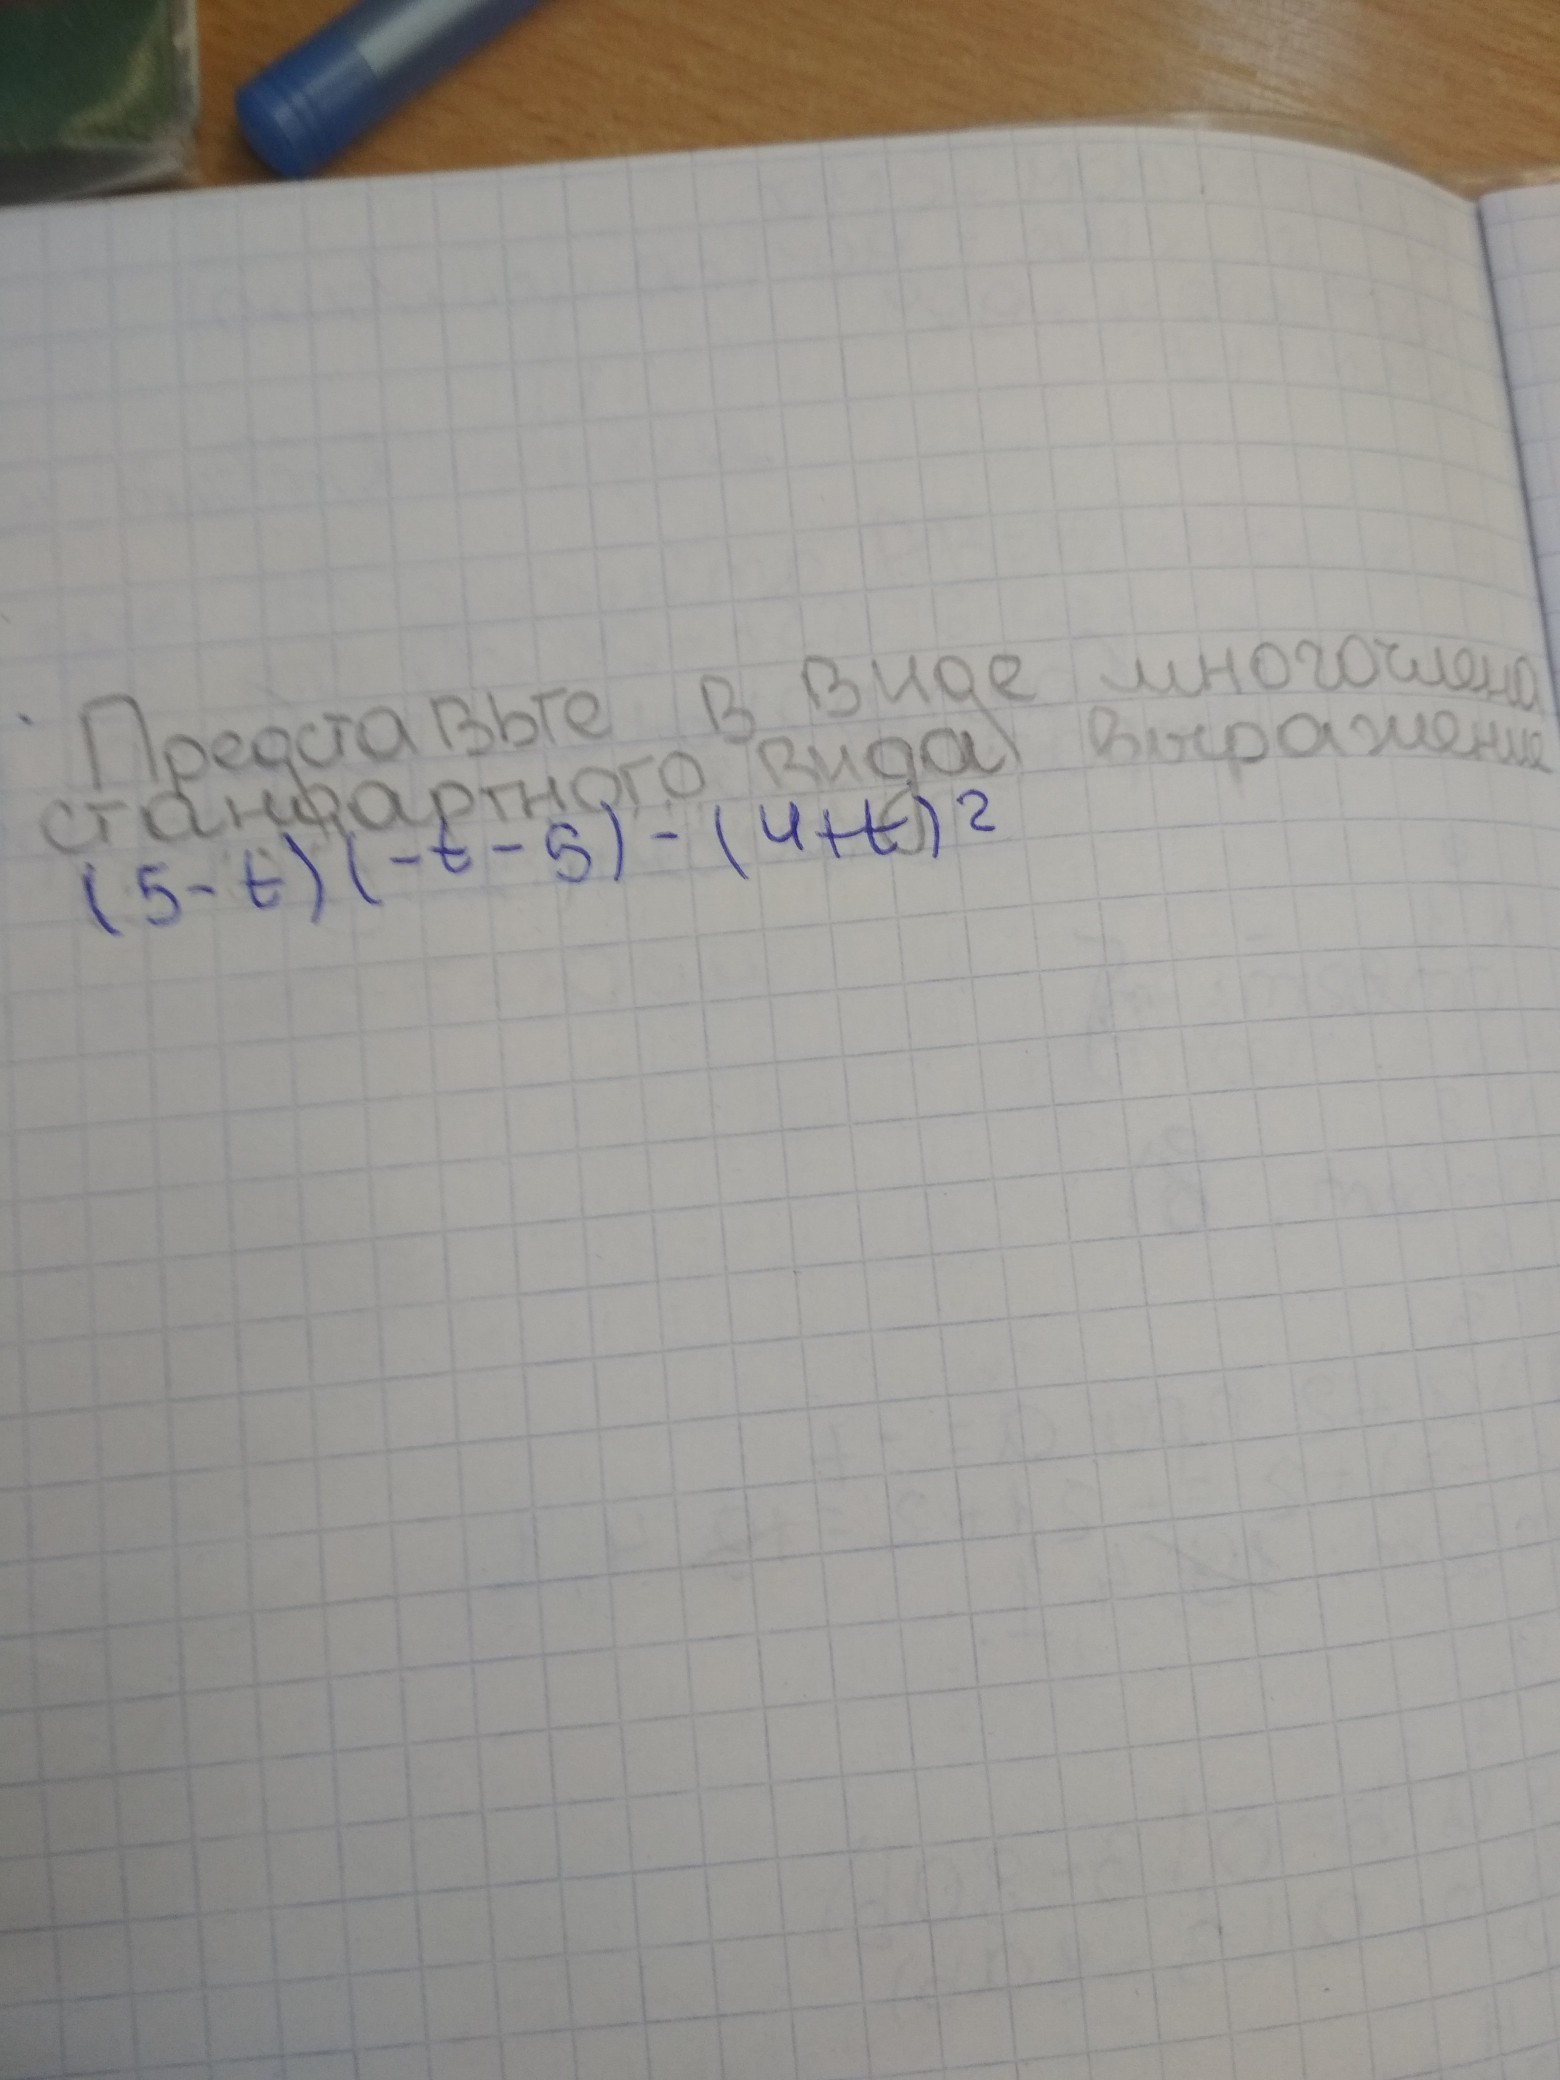 Представьте в виде многочлена
стандартного вида выражение
(5-t)(-t-5)-(4+t)2